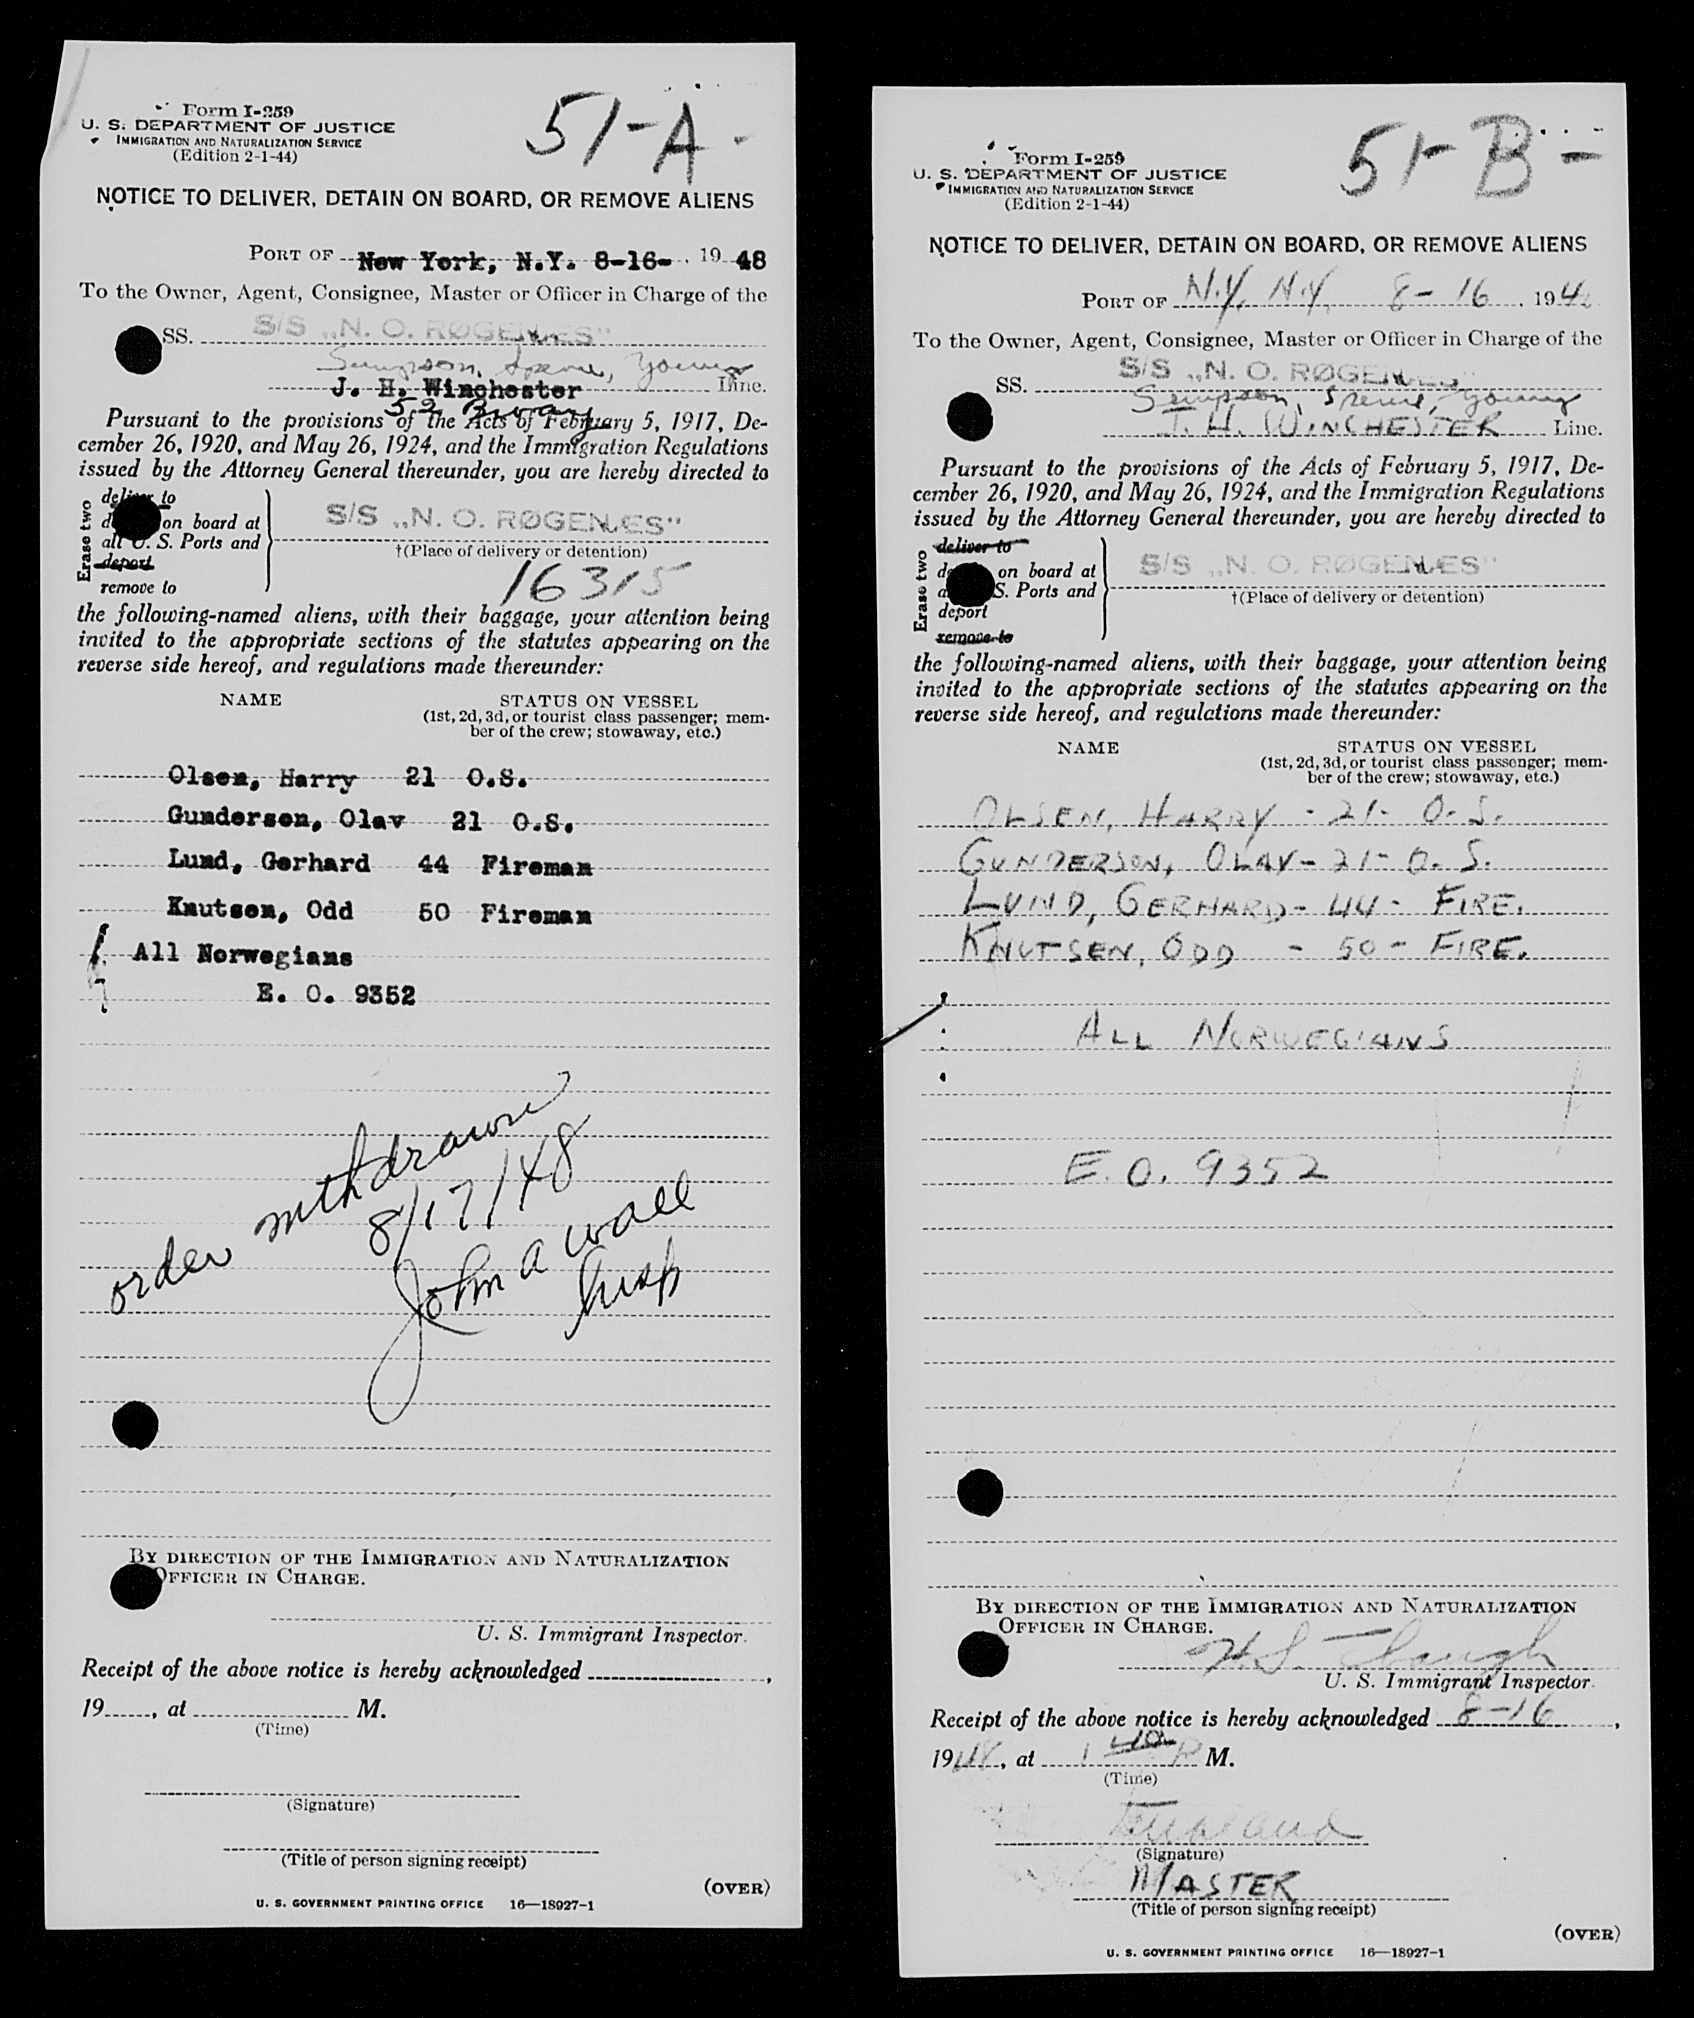 Form I-259
U. S. DEPARTMENT OF JUSTICE
IMMIGRATION AND NATURALIZATION SERVICE
(Edition 2-1-44)
51-A-
NOTICE TO DELIVER, DETAIN ON BOARD, OR REMOVE ALIENS
PORT OF New York, N.Y. 8-16- , 19 48
To the Owner, Agent, Consignee, Master or Officer in Charge of the
SS. S/S „N. O. RØGENÆS"
Simpson, Spence, Young
J. H. Winchester Line.
52 Bway
Pursuant to the provisions of the Acts of February 5, 1917, De-
cember 26, 1920, and May 26, 1924, and the Immigration Regulations
issued by the Attorney General thereunder, you are hereby directed to
Erase two
deliver to
on board at
all U. S. Ports and
deport
remove to
S/S „N. O. RØGENÆS"
†(Place of delivery or detention)
16315
the following-named aliens, with their baggage, your attention being
invited to the appropriate sections of the statutes appearing on the
reverse side hereof, and regulations made thereunder:
NAME STATUS ON VESSEL
(1st, 2d, 3d, or tourist class passenger; mem-
ber of the crew; stowaway, etc.)
Olsen, Harry 21 O.S.
Gunderson, Olav 21 O.S.
Lund, Gerhard 44 Fireman
Knutsen, Odd 50 Fireman
All Norwegians
E. O. 9352
order withdrawn
8/17/48
John A Wall
Insp
BY DIRECTION OF THE IMMIGRATION AND NATURALIZATION
OFFICER IN CHARGE.
U. S. Immigrant Inspector.
Receipt of the above notice is hereby acknowledged ,
19 , at M.
(Time)
(Signature)
(Title of person signing receipt)
(OVER)
U. S. GOVERNMENT PRINTING OFFICE 16—18927-1
Form I-259
U. S. DEPARTMENT OF JUSTICE
IMMIGRATION AND NATURALIZATION SERVICE
(Edition 2-1-44)
51-B-
NOTICE TO DELIVER, DETAIN ON BOARD, OR REMOVE ALIENS
PORT OF N.Y. N.Y. 8-16 , 194
To the Owner, Agent, Consignee, Master or Officer in Charge of the
SS. S/S „N. O. RØGENÆS"
Simpson, Spence, Young
J. H. WINCHESTER Line.
Pursuant to the provisions of the Acts of February 5, 1917, De-
cember 26, 1920, and May 26, 1924, and the Immigration Regulations
issued by the Attorney General thereunder, you are hereby directed to
Erase two
deliver to
on board at
S. Ports and
deport
remove to
S/S „N. O. RØGENÆS"
†(Place of delivery or detention)
the following-named aliens, with their baggage, your attention being
invited to the appropriate sections of the statutes appearing on the
reverse side hereof, and regulations made thereunder:
NAME STATUS ON VESSEL
(1st, 2d, 3d, or tourist class passenger; mem-
ber of the crew; stowaway, etc.)
OLSEN, HARRY - 21- O. S.
GUNDERSON, OLAV- 21- O. S.
LUND, GERHARD- 44- FIRE.
KNUTSEN, ODD - 50- FIRE.
ALL NORWEGIANS
E. O. 9352
BY DIRECTION OF THE IMMIGRATION AND NATURALIZATION
OFFICER IN CHARGE.
U. S. Immigrant Inspector.
Receipt of the above notice is hereby acknowledged 8-16 ,
1948, at 1 40 P M.
(Time)
(Signature)
MASTER
(Title of person signing receipt)
(OVER)
U. S. GOVERNMENT PRINTING OFFICE 16—18927-1